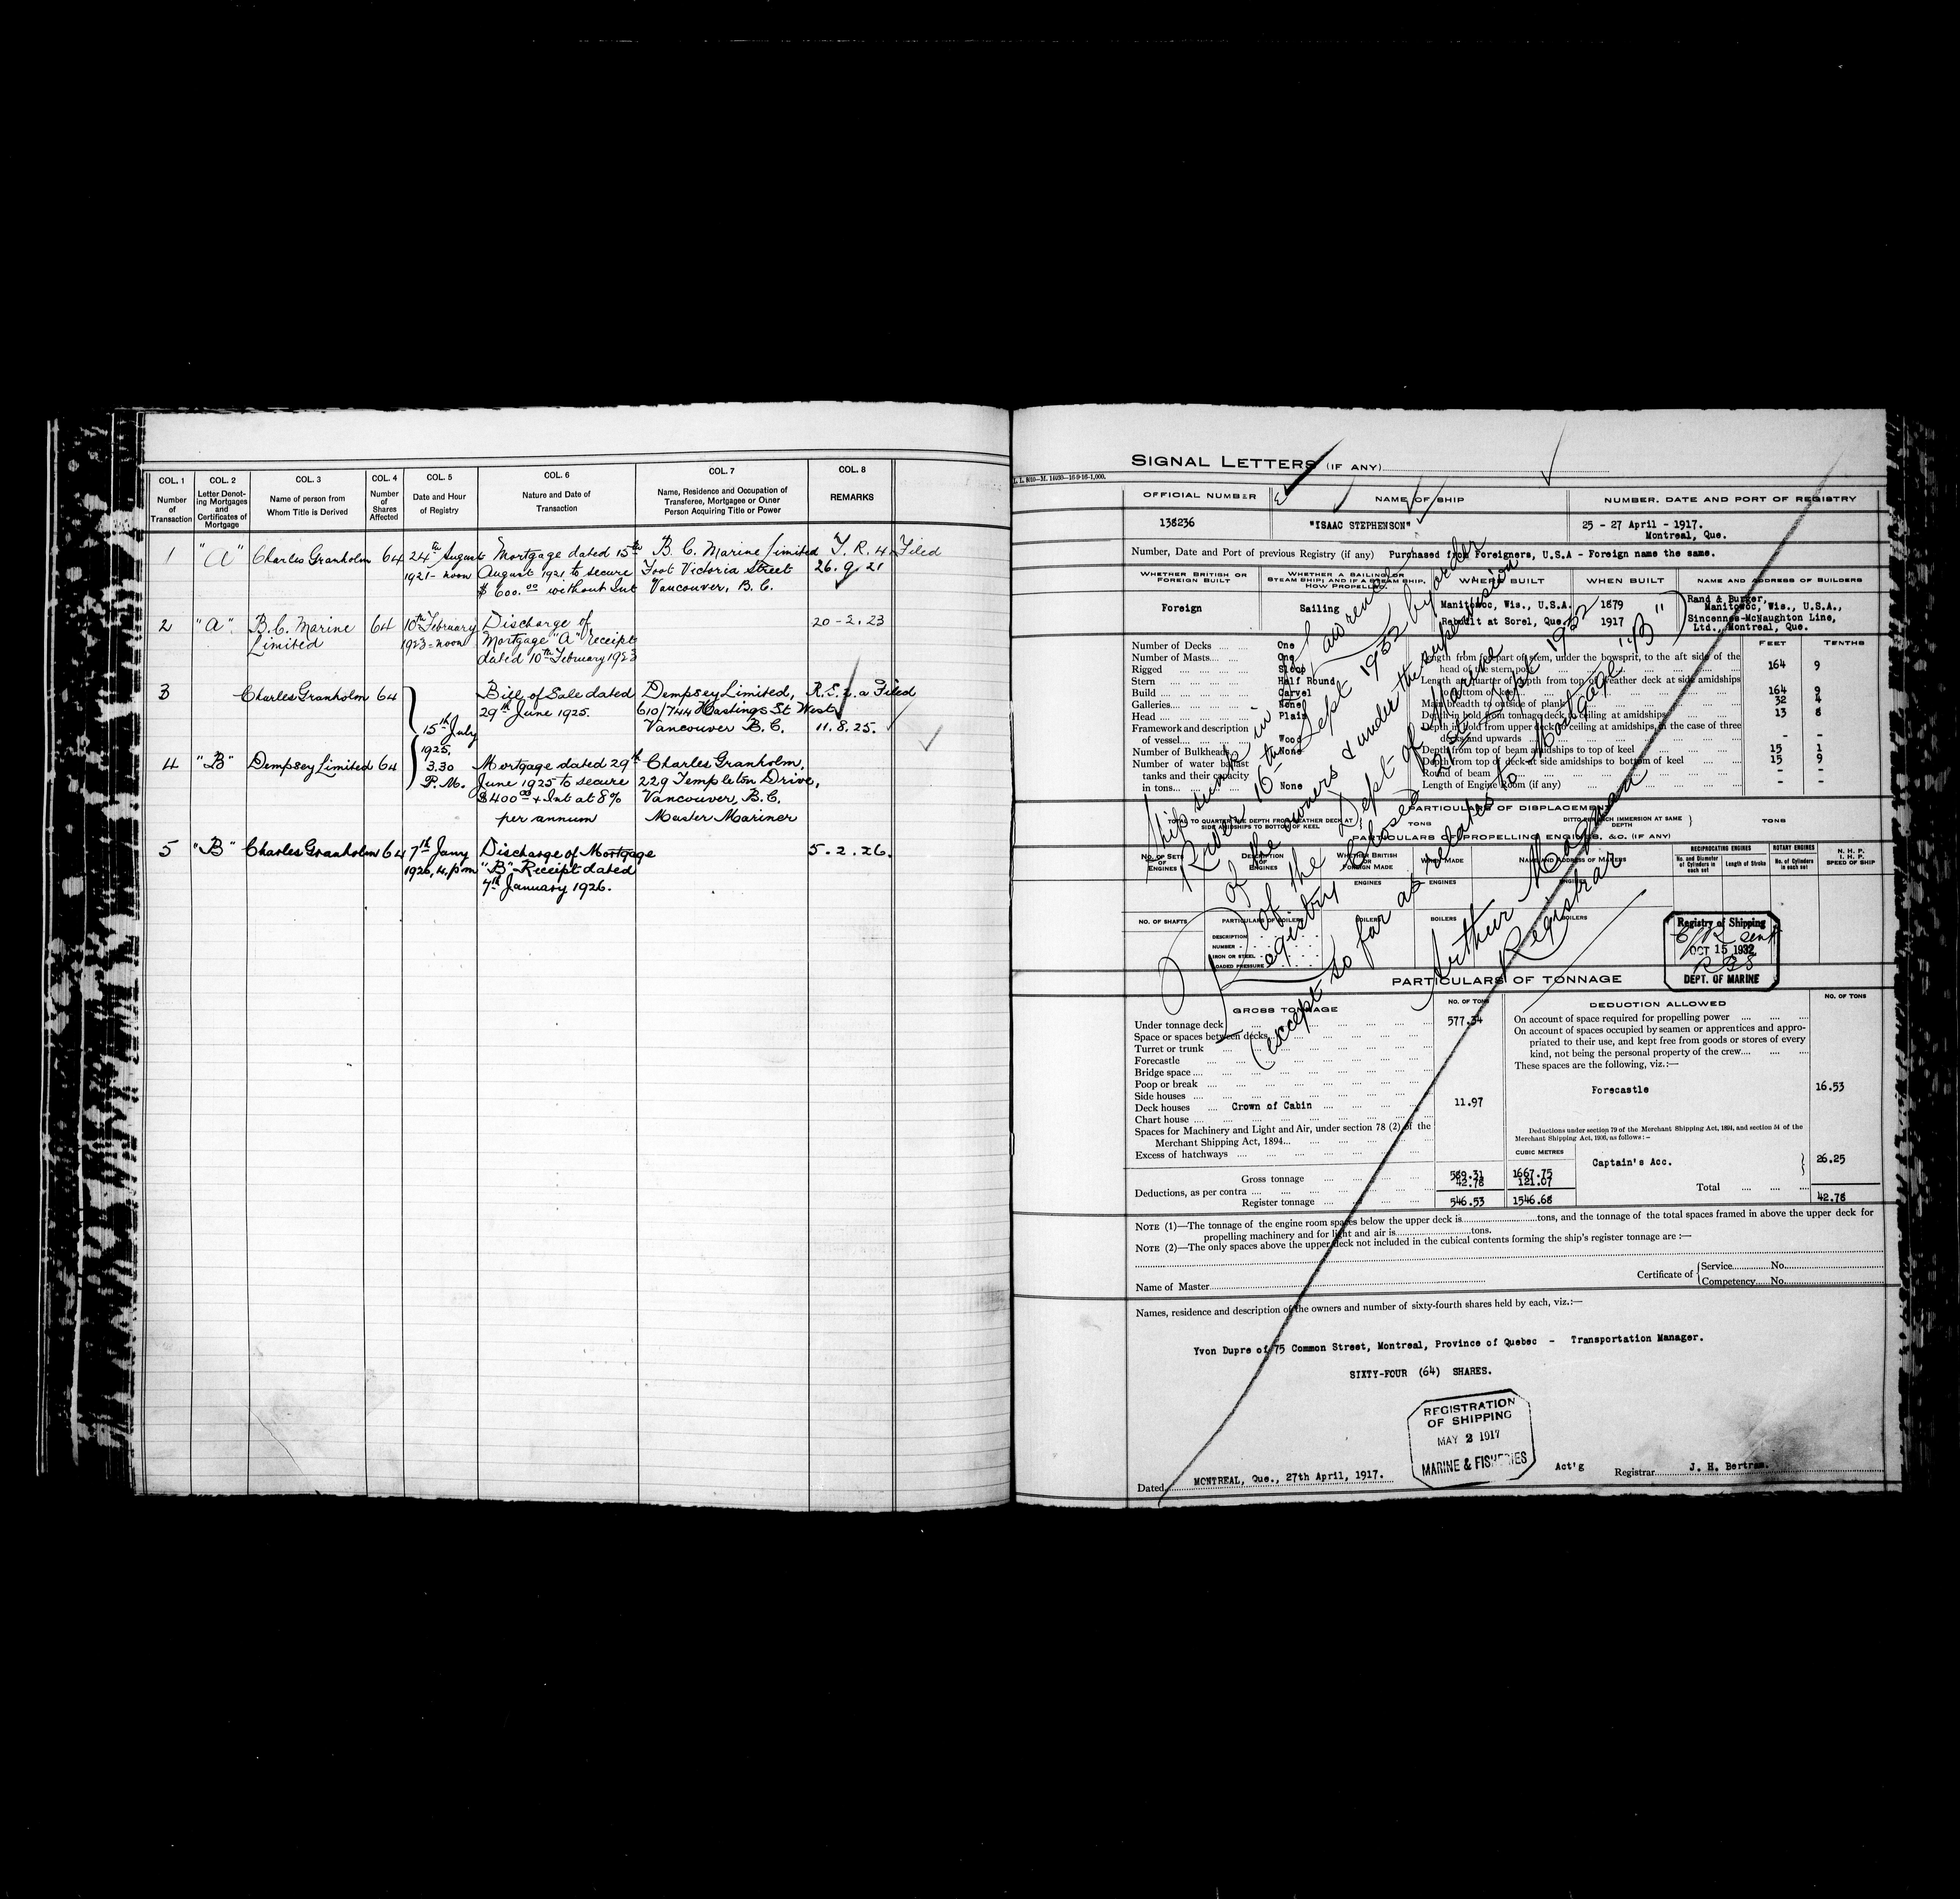 COL. 1 COL. 2 COL. 3 COL. 4 COL. 5 COL. 6 COL. 7 COL. 8
Number of Transaction
Letter Denoting Mortgages and Certificates of Mortgage
Name of person from Whom Title is Derived
Number of Shares Affected
Date and Hour of Registry
Nature and Date of Transaction
Name, Residence and Occupation of Transferee, Mortgagee or Other Person Acquiring Title or Power
REMARKS
1 "A" Charles Granholm 64 24th August Mortgage dated 15th B. C. Marine Limited T. R. 4 Filed
1921 - noon August 1921 to secure Foot Victoria Street 26. 9. 21
$ 600.00 without Int Vancouver, B. C.
2 "A" B. C. Marine 64 10th February Discharge of 20-2.23
Limited 1923 = noon Mortgage "A" receipt
dated 10th February 1923
3 Charles Granholm 64 Bill of Sale dated Dempsey Limited, Filed
15th July 29th June 1925. 610/744 Hastings St West
1925. Vancouver B. C. 11.8.25.
4 "B" Dempsey Limited 64 3.30 Mortgage dated 29th Charles Granholm,
P. M. June 1925 to secure 229 Templeton Drive,
$400.00 + Int at 8% Vancouver, B. C.
per annum Master Mariner
5 "B" Charles Granholm 64 7th Jany Discharge of Mortgage 5.2.26.
1926, 4, pm "B" - Receipt dated
7th January 1926.
SIGNAL LETTERS (IF ANY)
OFFICIAL NUMBER NAME OF SHIP NUMBER, DATE AND PORT OF REGISTRY
138236 "ISAAC STEPHENSON" 25 - 27 April - 1917.
Montreal, Que.
Number, Date and Port of previous Registry (if any) Purchased from Foreigners, U.S.A - Foreign name the same.
WHETHER BRITISH OR FOREIGN BUILT
WHETHER A SAILING OR STEAM SHIP; AND IF A STEAM SHIP, HOW PROPELLED
WHERE BUILT WHEN BUILT NAME AND ADDRESS OF BUILDERS
Foreign Sailing Manitowoc, Wis., U.S.A. 1879 Rand & Burger,
Manitowoc, Wis., U.S.A.,
Rebuilt at Sorel, Que. 1917 Sincennes-McNaughton Line,
Ltd., Montreal, Que.
FEET TENTHS
Number of Decks One
Number of Masts One
Rigged Sloop
Stern Half Round
Build Carvel
Galleries None
Head Plain
Framework and description
of vessel Wood
Number of Bulkheads None
Number of water ballast
tanks and their capacity
in tons None
Length from forepart of stem, under the bowsprit, to the aft side of the
head of the sternpost 164 9
Length at quarter of depth from top of weather deck at side amidships
to bottom of keel 164 9
Main breadth to outside of plank 32 4
Depth in hold from tonnage deck to ceiling at amidships 13 8
Depth in hold from upper deck to ceiling at amidships, in the case of three
decks and upwards - -
Depth from top of beam amidships to top of keel 15 1
Depth from top of deck at side amidships to bottom of keel 15 9
Round of beam - -
Length of Engine Room (if any) - -
Ship sunk in Lawrence
River 16th Sept 1932 by order
of the owners & under the supervision
of the Dept of Marine
Registry Closed 21st Sept 1932
(except so far as relates to Mortgage "B")
Arthur
Registrar
PARTICULARS OF DISPLACEMENT
TOTAL TO QUARTER THE DEPTH FROM WEATHER DECK AT SIDE AMIDSHIPS TO BOTTOM OF KEEL TONS
DITTO PER INCH IMMERSION AT SAME DEPTH TONS
PARTICULARS OF PROPELLING ENGINES, &C. (IF ANY)
NO. OF SETS OF ENGINES DESCRIPTION OF ENGINES WHETHER BRITISH OR FOREIGN MADE WHEN MADE NAME AND ADDRESS OF MAKERS
RECIPROCATING ENGINES ROTARY ENGINES
No. and Diameter of Cylinders in each set Length of Stroke No. of Cylinders in each set
N. H. P. I. H. P. SPEED OF SHIP
ENGINES ENGINES ENGINES
NO. OF SHAFTS PARTICULARS OF BOILERS BOILERS BOILERS BOILERS
DESCRIPTION
NUMBER
IRON OR STEEL
LOADED PRESSURE
Registry of Shipping
OCT 15 1932
DEPT. OF MARINE
PARTICULARS OF TONNAGE
GROSS TONNAGE NO. OF TONS DEDUCTION ALLOWED NO. OF TONS
Under tonnage deck 577.34
Space or spaces between decks
Turret or trunk
Forecastle
Bridge space
Poop or break
Side houses
Deck houses Crown of Cabin 11.97
Chart house
Spaces for Machinery and Light and Air, under section 78 (2) of the
Merchant Shipping Act, 1894
Excess of hatchways
CUBIC METRES
Gross tonnage 589.31 1667.75
Deductions, as per contra 42.78 121.07
Register tonnage 546.53 1546.68
On account of space required for propelling power
On account of spaces occupied by seamen or apprentices and appro-
priated to their use, and kept free from goods or stores of every
kind, not being the personal property of the crew
These spaces are the following, viz.:—
Forecastle 16.53
Deductions under section 79 of the Merchant Shipping Act, 1894, and section 54 of the
Merchant Shipping Act, 1906, as follows:—
Captain's Acc. 26.25
Total 42.78
NOTE (1)—The tonnage of the engine room spaces below the upper deck is tons, and the tonnage of the total spaces framed in above the upper deck for
propelling machinery and for light and air is tons.
NOTE (2)—The only spaces above the upper deck not included in the cubical contents forming the ship's register tonnage are :—
Name of Master Certificate of Service No.
Competency No.
Names, residence and description of the owners and number of sixty-fourth shares held by each, viz.:—
Yvon Dupre of 75 Common Street, Montreal, Province of Quebec - Transportation Manager.
SIXTY-FOUR (64) SHARES.
REGISTRATION
OF SHIPPING
MAY 2 1917
MARINE & FISHERIES
Dated MONTREAL, Que., 27th April, 1917. Act'g Registrar J. H. Bertram.